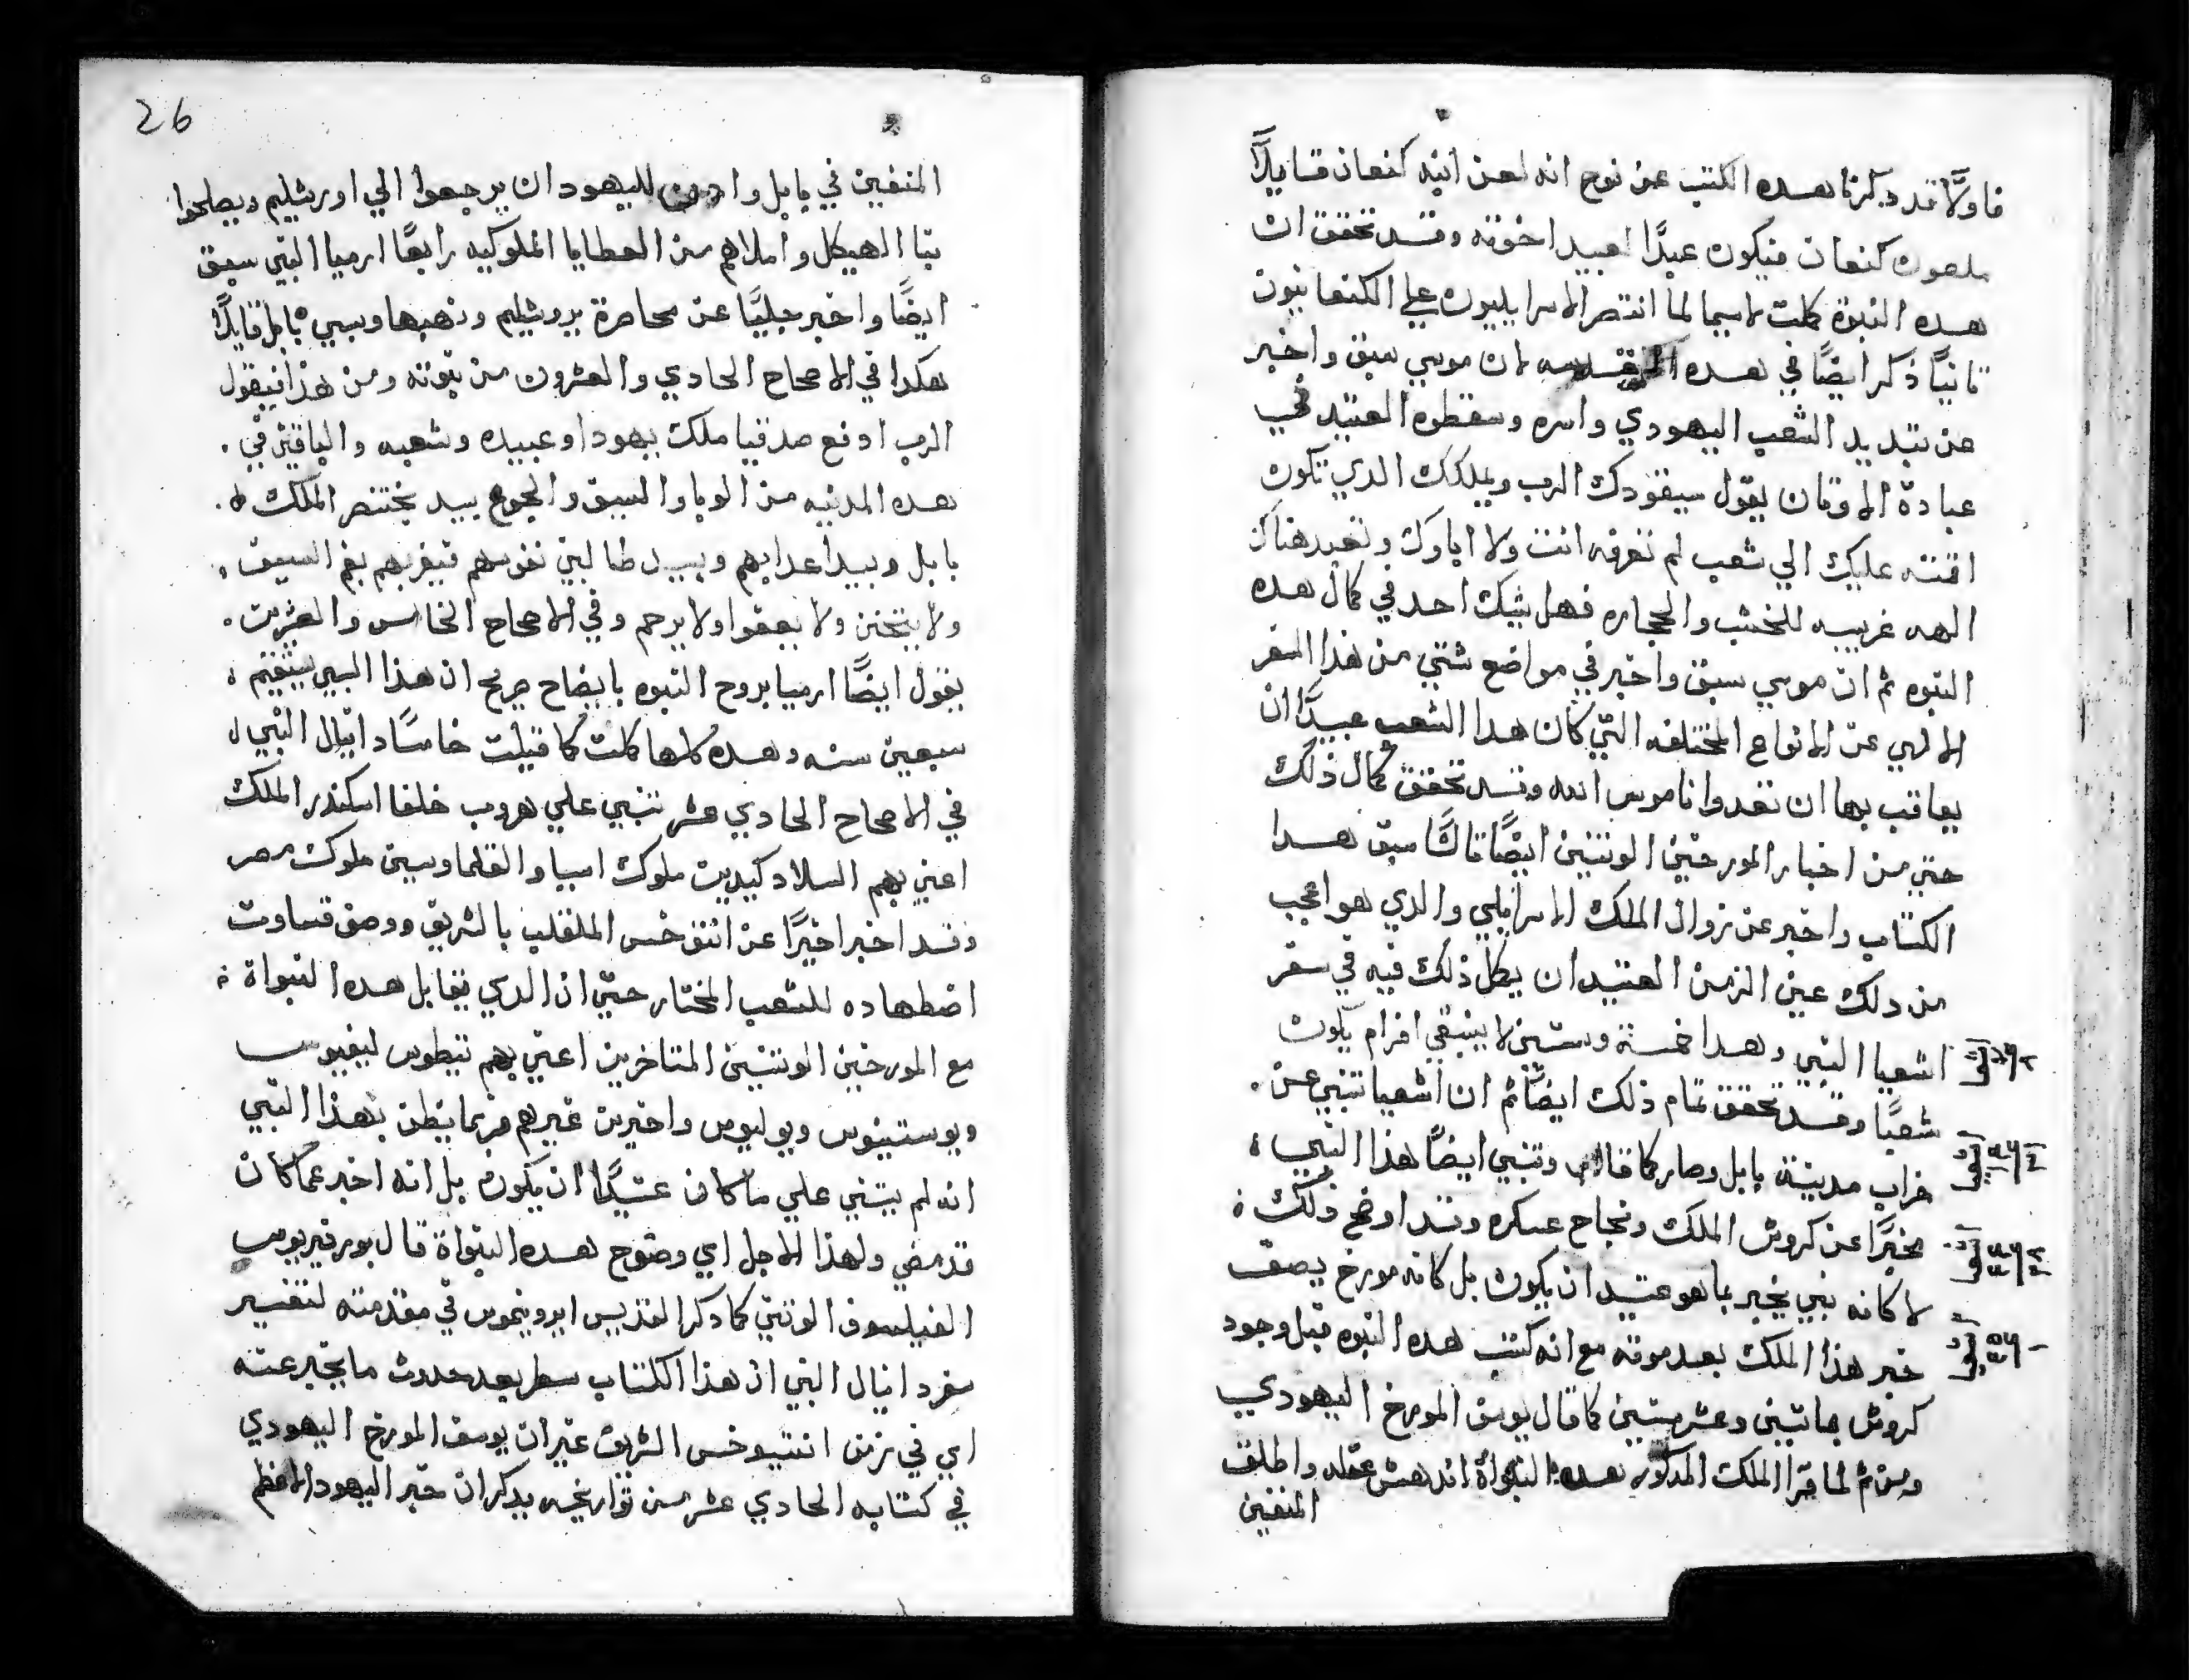 فاولًا قد دكرنا هده الكتب عن نوح انه لعن ابنه كنعان قايلًا
ملعون كنعان فيكون عبدًا لعبيد اخوته وقد تحقق ان
هده النبوة كملت لاسيما لما انتصر الاسراييليون علي الكنعانيون
تانيًا ذكر ايضًا في هده لان موسي سبق واخبر
عن تبديد الشعب اليهودي واسره وسقطوه العتيد في
عبادة الاوتان يقول سيقودك الرب ويملكك الدي تكون
اقمته عليك الي شعب لم تعرفه انت ولا اباوك وتعبد هناك
الهه غريبه للخشب والحجاره فهل يشك احد في كمال هده
النبوه ثم ان موسي سبق واخبر في مواضع شتي من هذا السفر
الالهي عن الانواع المختلفه التي كان هدا الشعب عبيدًا ان
يعاقب بها ان تعدوا ناموس الله وقد تحقق كمال ذلك
حتي من اخبار المورخين الوتنين ايضًا تالتًا سبق هدا
الكتاب واخبر عن زوال الملك الاسراييلي والدي هو اعجب
من دلك عين الزمن العتيد ان يكمل ذلك فيه في سفر
اشعيا النبي وهدا خمسة وستين لا ينبقي افرام يكون
شعبًا وقد تحقق تمام ذلك ايضًا ثم ان اشعيا تنبي عن
خراب مدينة بابل وصار كما قال وتنبي ايضًا هذا النبي
مخبرًا عن كروش الملك ونجاح عسكره وقد اوضح ذلك
لا كانه نبي يخبر بما هو عتيد ان يكون بل كانه مورخ يصف
خبر هذا الملك بعد موته مع انه كتب هده النبوه قبل وجود
كروش بمايتين وعشر سنين كما قال يوسف المورخ اليهودي
ومن ثم لما قرا الملك المدكور هده النبواة اندهش عقله واطلق
المنفين
26
المنفين في بابل واذن لليهود ان يرجعوا الي اورشليم ويصلحوا
بنا الهيكل واملاهم من العطايا الملوكيه رابعًا ارميا النبي سبق
ايضًا واخبر جليًا عن محاصرة يروشليم ونهبها وسبي بابل قايلًا
هكدا في الاصحاح الحادي والعشرون من نبوته ومن هذا فيقول
الرب ادفع صدقيا ملك يهودا وعبيده وشعبه والباقين في
هده المدنيه من الوبا والسيف والجوع بيد بختنصر الملك
بابل وبيد اعدايهم وبيد طالبين نفوسهم فيضربهم بفم السيف
ولا يتحنن ولا يعفوا ولا يرحم وفي الاصحاح الخامس والعشرين
يقول ايضًا ارميا بروح النبوه بايضاح صريح ان هذا السبي سيقيم
سبعين سنه وهده كلها كملت كما قيلت خامسًا دانيال النبي
في الاصحاح الحادي عشر تنبي علي هروب خلفا اسكندر الملك
اعني بهم السلادكيديت ملوك اسيا والقلماوسين ملوك مصر
وقد اخبر اخيرًا عن انتوخس الملقلب بالشريق ووصف قساوت
اضطهاده للشعب المختار حتي ان الدي يقابل هده النبواة
مع المورخين الوتنيين المتاخرين اعني بهم تيطوس ليفيوس
ويوستينوس وبوليوس واخيرين غيرهم فربما يظن بهذا النبي
انه لم يتنبي علي ما كان عتيدًا ان يكون بل انه اخبر عما كان
قد مضي ولهذا الاجل اي وضوح هده النبواة قال بورفيريوس
الفيلسوف الوتني كما دكر القديس ايرونيموس في مقدمته لتفسير
سفر دانيال النبي ان هذا الكتاب سطر بعد حدوث ما يخبر عنه
اي في زمن انتيوخس الشريف غير ان يوسف المورخ اليهودي
في كتابه الحادي عشر من تواريخه يدكر ان حبر اليهود الاعظم